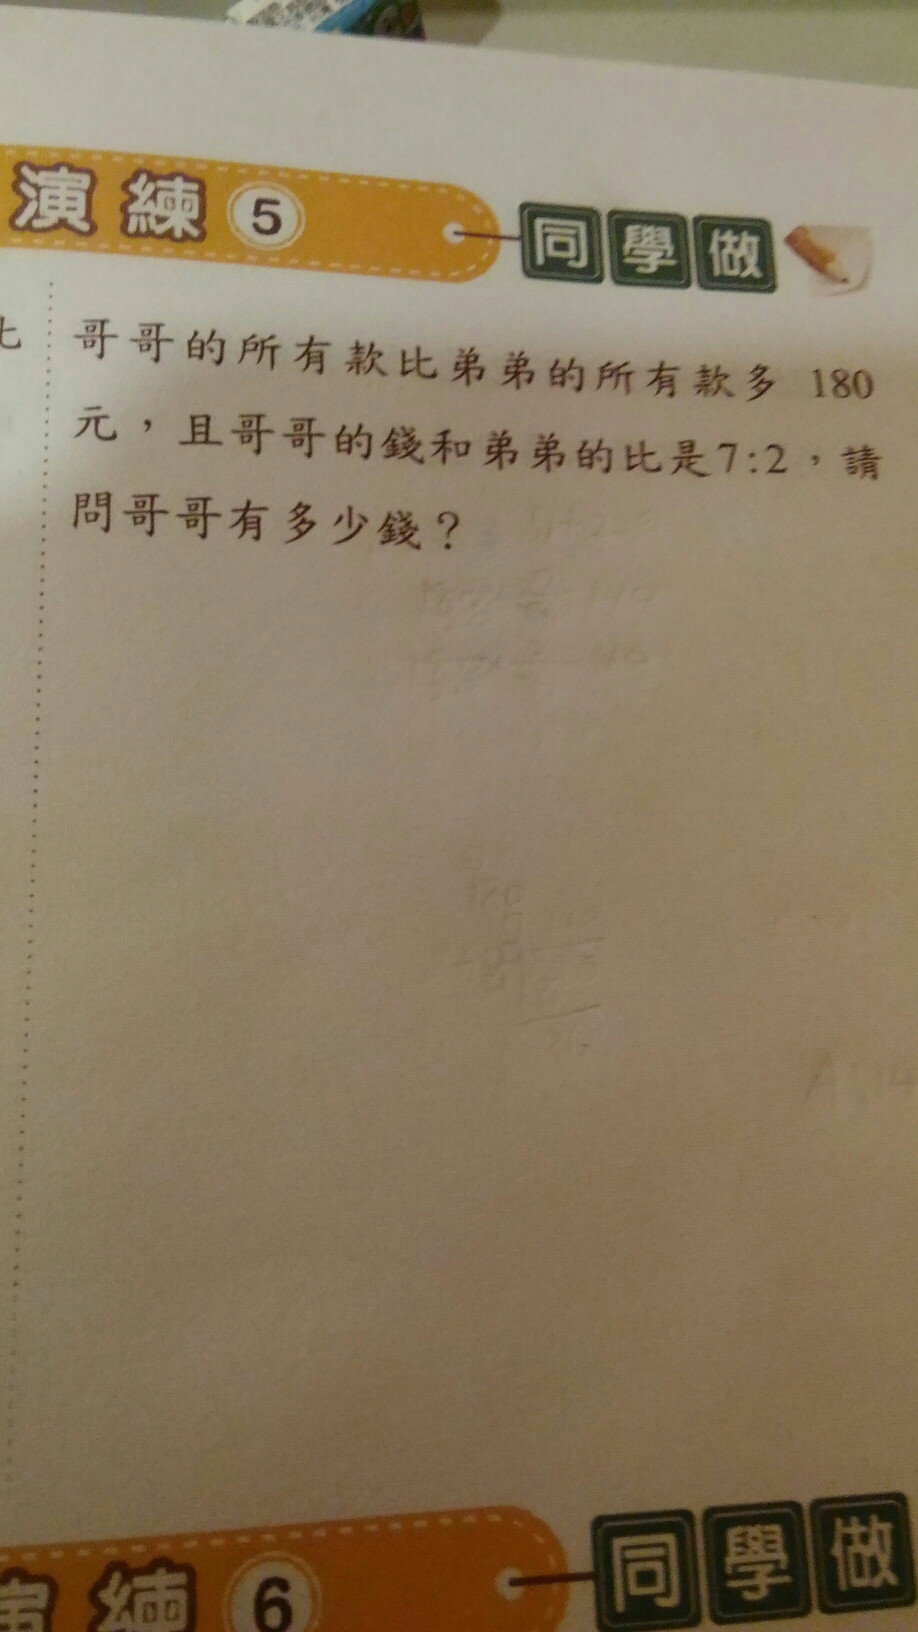 演練 5 同學做
哥哥的所有款比弟弟的所有款多 180
元，且哥哥的錢和弟弟的比是7:2，請
問哥哥有多少錢？
演練 6 同學做